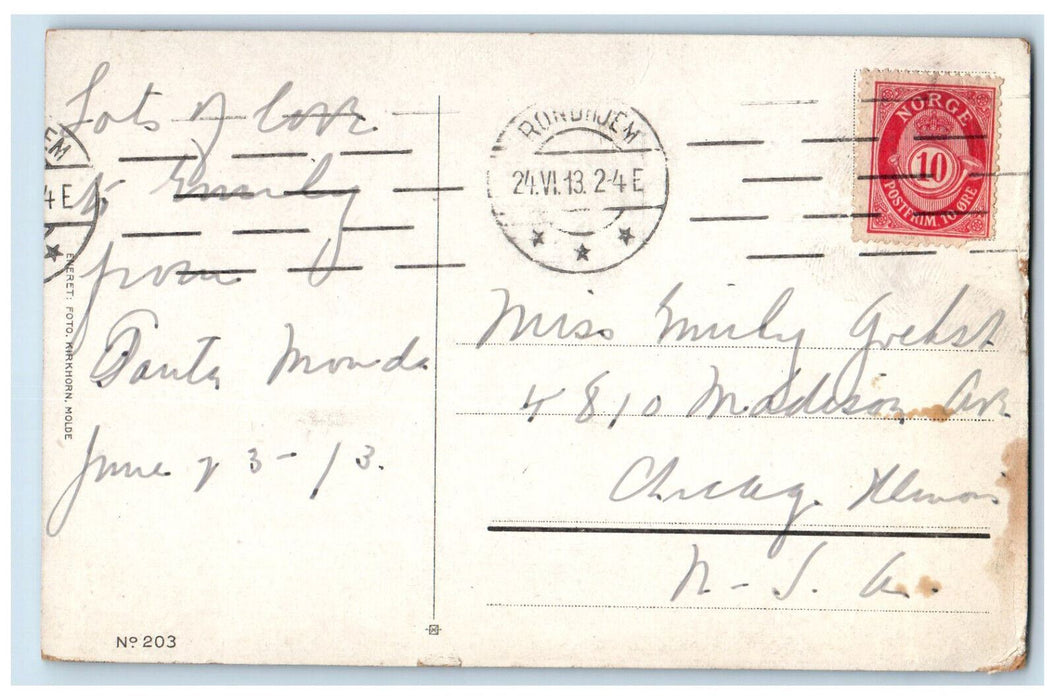 Lots of love
to Emily
from
June 23-13.
EM
4 E
ENERET: FOTO. KIRKHORN, MOLDE
Nº 203
RONDHJEM
24.VI.13. 2-4 E
NORGE
10
POSTFRIM. 10 ØRE
Miss Emily
4810 Madison Ave
Chicago Illinois
U.S.A.